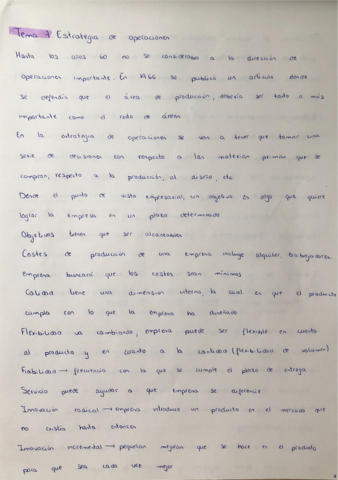 Tema 7 Estrategia de operaciones
Hasta los años 60 no se consideraba a la dirección de
operaciones importante. En 1966 se publicó un artículo donde
se defendía que el área de producción, debería ser todo a más
importante como el resto de áreas
En la estrategia de operaciones se van a tener que tomar una
serie de decisiones con respecto a las materias primas que se
compran, respecto a la producción, al diseño, etc
Desde el punto de vista empresarial, un objetivo es algo que quiere
lograr la empresa en un plazo determinado
Objetivos tienen que ser alcanzables
Costes de producción de una empresa incluye alquiler, trabajadores.
empresa buscará que los costes sean mínimos
Calidad tiene una dimensión interna, la cual es que el producto
cumpla con lo que la empresa ha diseñado
Flexibilidad va cambiando, empresa puede ser flexible en cuanto
al producto y en cuanto a la cantidad (flexibilidad de volumen)
Fiabilidad → frecuencia con la que se cumple el plazo de entrega
Servicio puede ayudar a que empresa se diferencie
Innovación radical → empresa introduce un producto en el mercado que
no existía hasta entonces
Innovación incremental → pequeñas mejoras que se hace en el producto
para que sea cada vez mejor